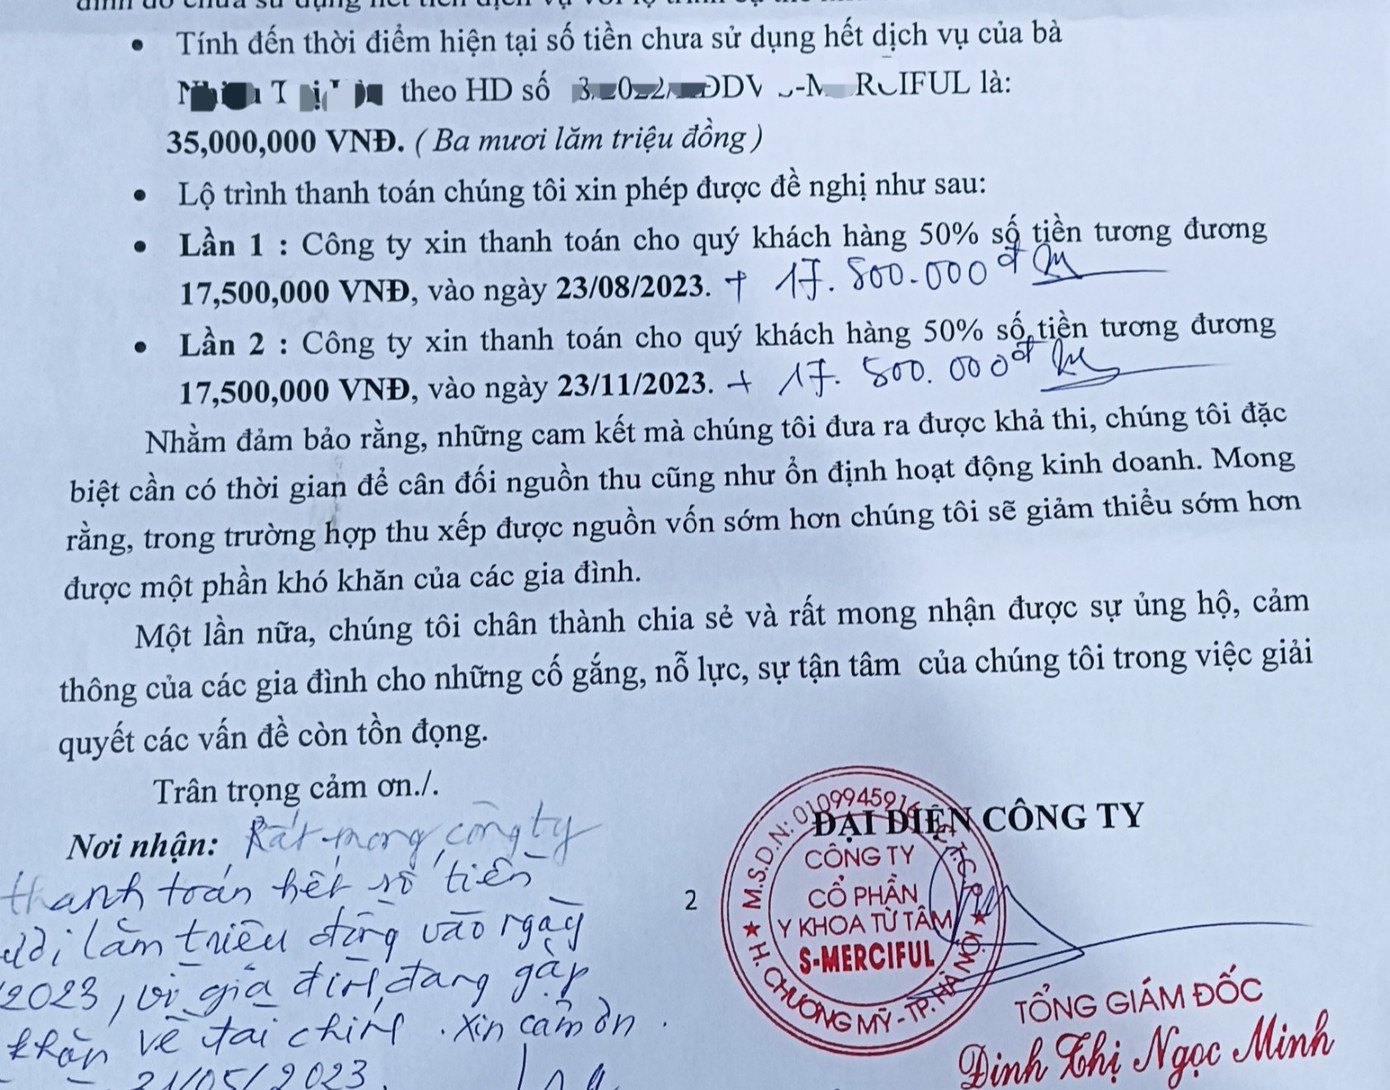 • Tính đến thời điểm hiện tại số tiền chưa sử dụng hết dịch vụ của bà
theo HD số
là:
35,000,000 VNĐ. ( Ba mươi lăm triệu đồng )
• Lộ trình thanh toán chúng tôi xin phép được đề nghị như sau:
• Lần 1 : Công ty xin thanh toán cho quý khách hàng 50% số tiền tương đương
17,500,000 VNĐ, vào ngày 23/08/2023. + 17.500.000đ
• Lần 2 : Công ty xin thanh toán cho quý khách hàng 50% số tiền tương đương
17,500,000 VNĐ, vào ngày 23/11/2023. + 17.500.000đ
Nhằm đảm bảo rằng, những cam kết mà chúng tôi đưa ra được khả thi, chúng tôi đặc
biệt cần có thời gian để cân đối nguồn thu cũng như ổn định hoạt động kinh doanh. Mong
rằng, trong trường hợp thu xếp được nguồn vốn sớm hơn chúng tôi sẽ giảm thiểu sớm hơn
được một phần khó khăn của các gia đình.
Một lần nữa, chúng tôi chân thành chia sẻ và rất mong nhận được sự ủng hộ, cảm
thông của các gia đình cho những cố gắng, nỗ lực, sự tận tâm của chúng tôi trong việc giải
quyết các vấn đề còn tồn đọng.
Trân trọng cảm ơn./.
Nơi nhận: Rất mong công ty
thanh toán hết số tiền
lăm triệu đồng vào ngày
2023, vì gia đình đang gặp
khăn về tài chính. Xin cảm ơn.
21/05/2023
2
ĐẠI DIỆN CÔNG TY
M.S.D.N: 0109945916
CÔNG TY
CỔ PHẦN
Y KHOA TỪ TÂM
S-MERCIFUL
H. CHƯƠNG MỸ - TP. HÀ NỘI
TỔNG GIÁM ĐỐC
Đinh Thị Ngọc Minh